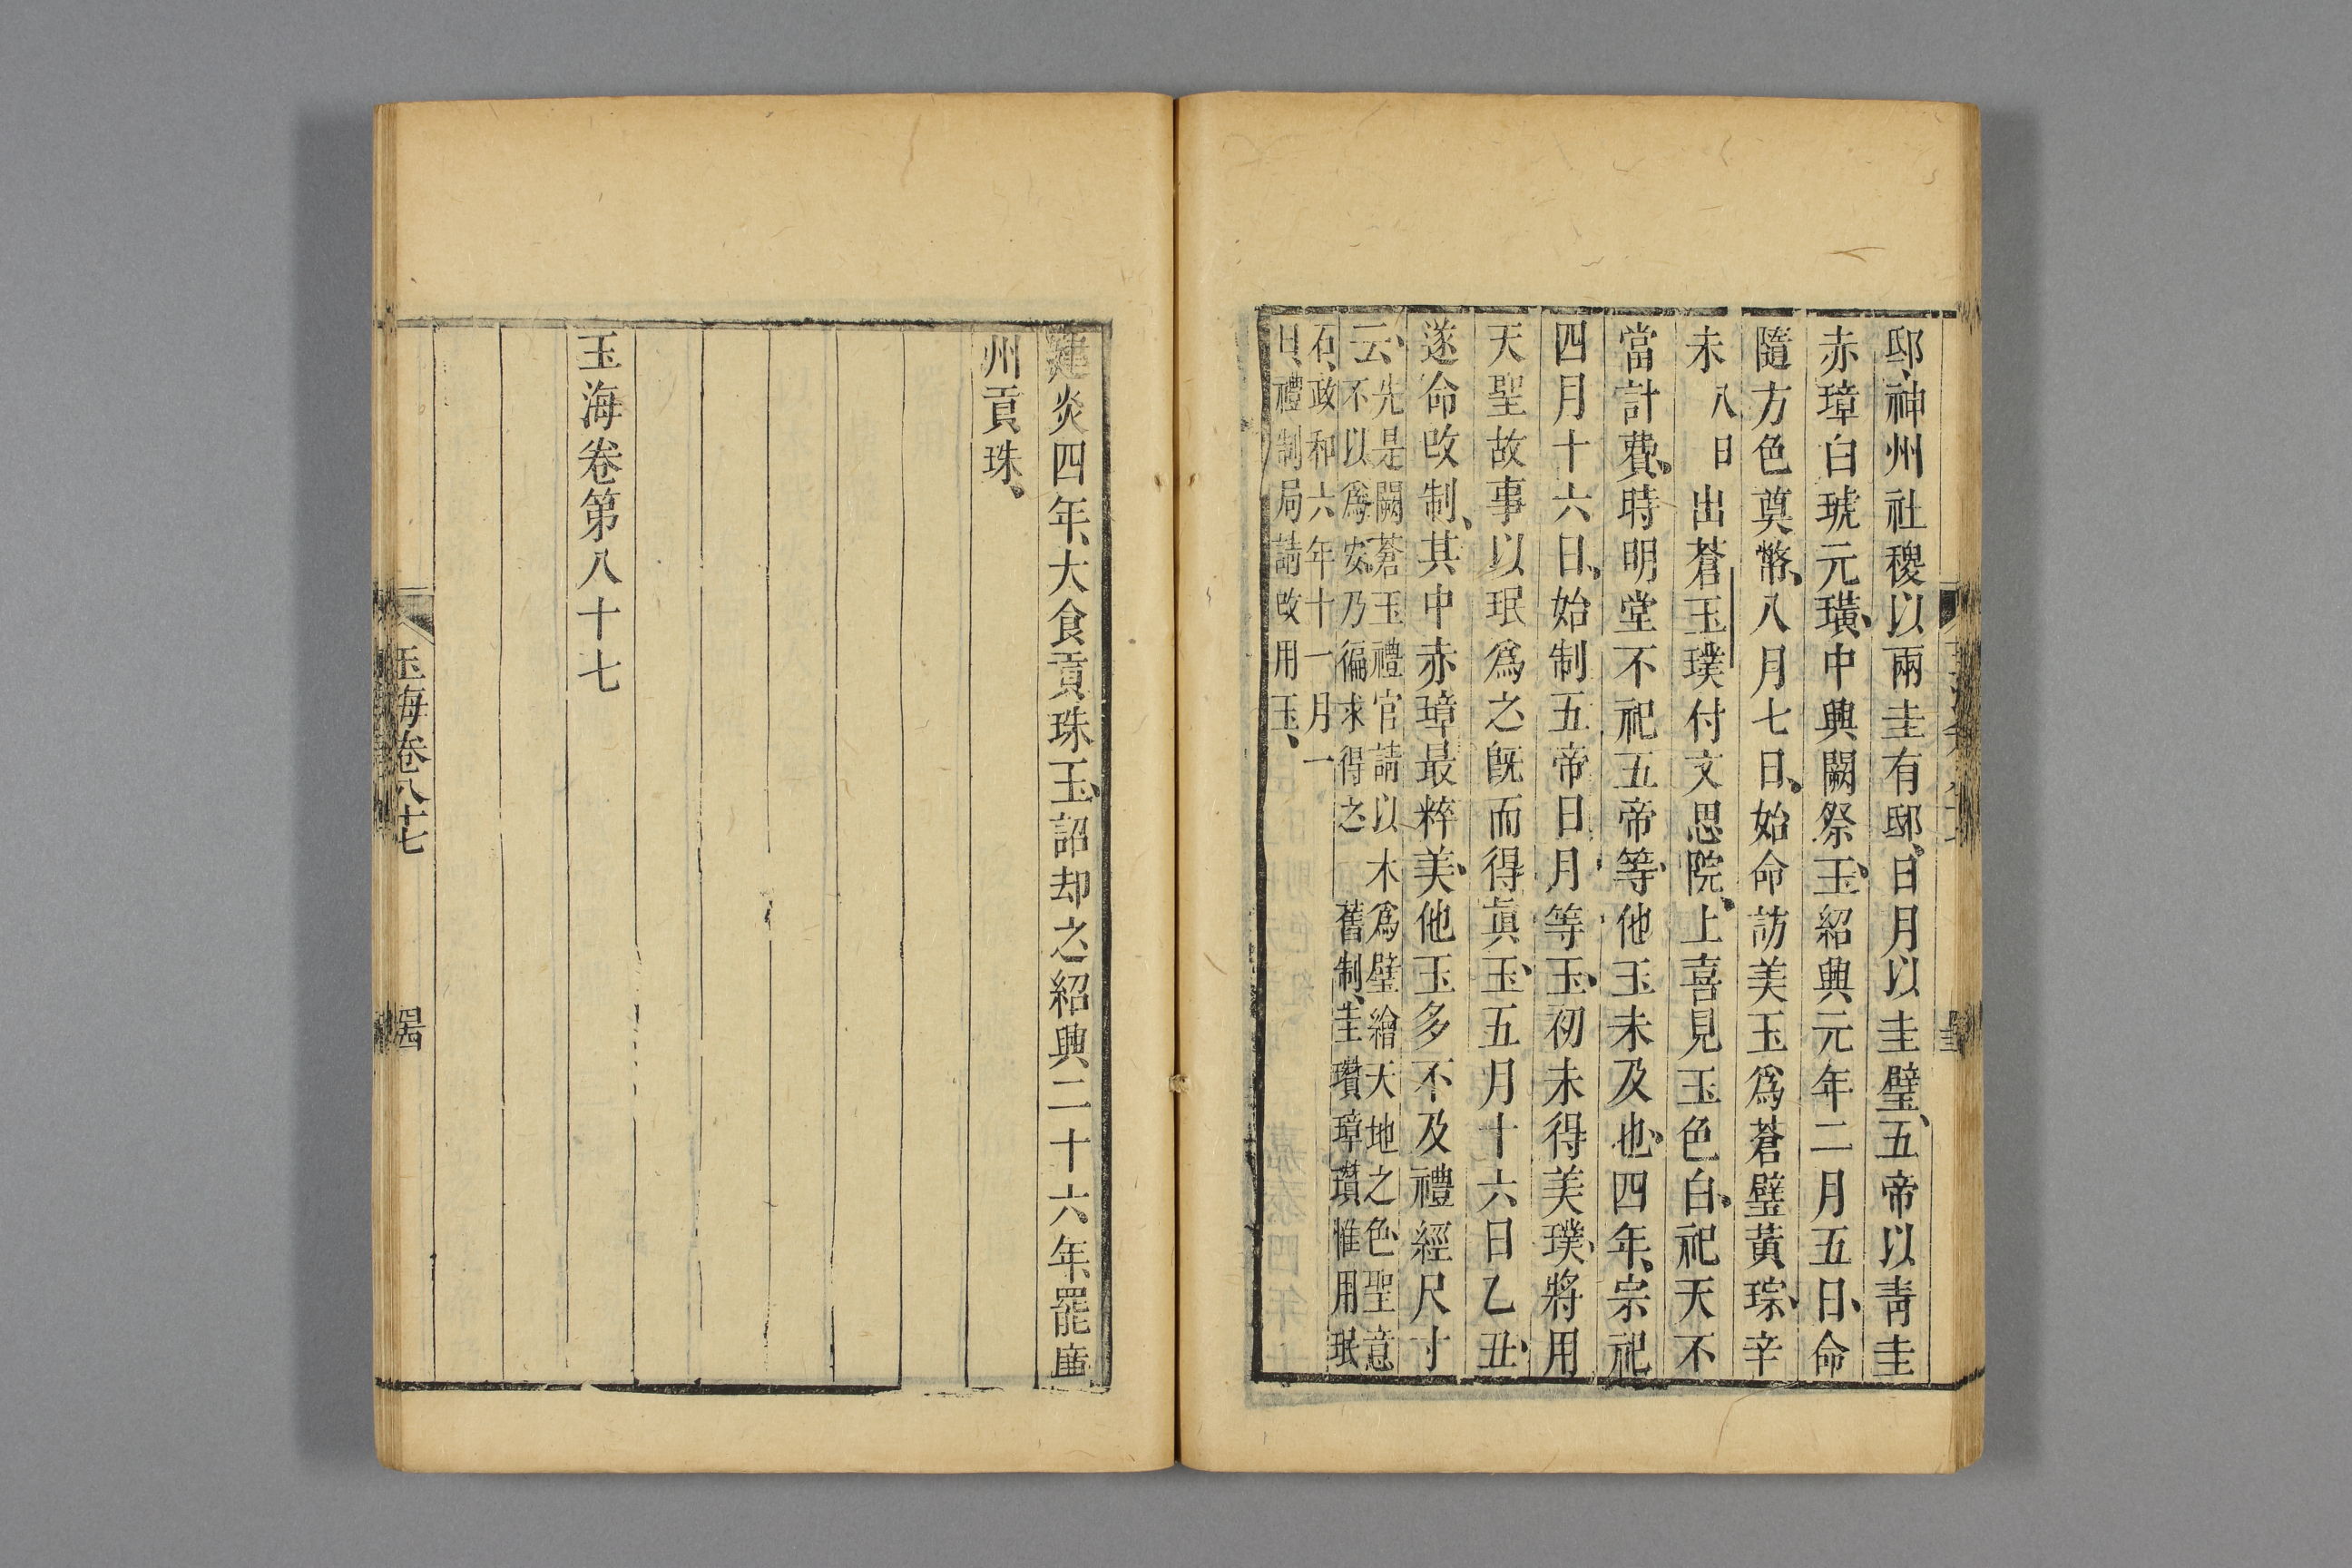 邸、神州社稷以兩圭有邸、日月以圭璧、五帝以靑圭
赤璋白琥元璜、中興闕祭玉、紹興元年二月五日、命
隨方色奠幣、八月七日、始命訪美玉爲蒼璧黃琮、辛
未八日出蒼玉璞付文思院、上喜見玉色白、祀天不
當計費、時明堂不祀五帝等、他玉未及也、四年、宗祀
四月十六日、始制五帝日月等玉、初未得美璞、將用
天聖故事以珉爲之旣而得眞玉、五月十六日乙丑、
遂命改制、其中赤璋最粹美、他玉多不及禮經尺寸
云、先是闕蒼玉禮官請以木爲璧繪天地之色、聖意
不以爲安、乃徧求得之 舊制、圭瓚璋瓚惟用珉
石、政和六年十一月一
日、禮制局請改用玉、
建炎四年、大食貢珠玉、詔却之紹興二十六年、罷廉
州貢珠、
玉海卷第八十七
玉海卷八十七